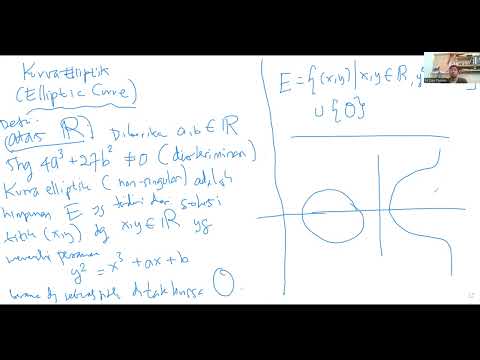 Kurva Eliptik
(Elliptic Curve)
Defi:
(atas ℝ) Diberikan a,b ∈ ℝ
shg 4a³ + 27b² ≠ 0 (diskriminan)
Kurva elliptik (non-singular) adalah
himpunan E yg terdiri dari solusi
titik (x,y) dg x,y ∈ ℝ yg
memenuhi persamaan
y² = x³ + ax + b
di tak hingga O.
E = {(x,y) | x,y ∈ ℝ, y²
∪ {O}